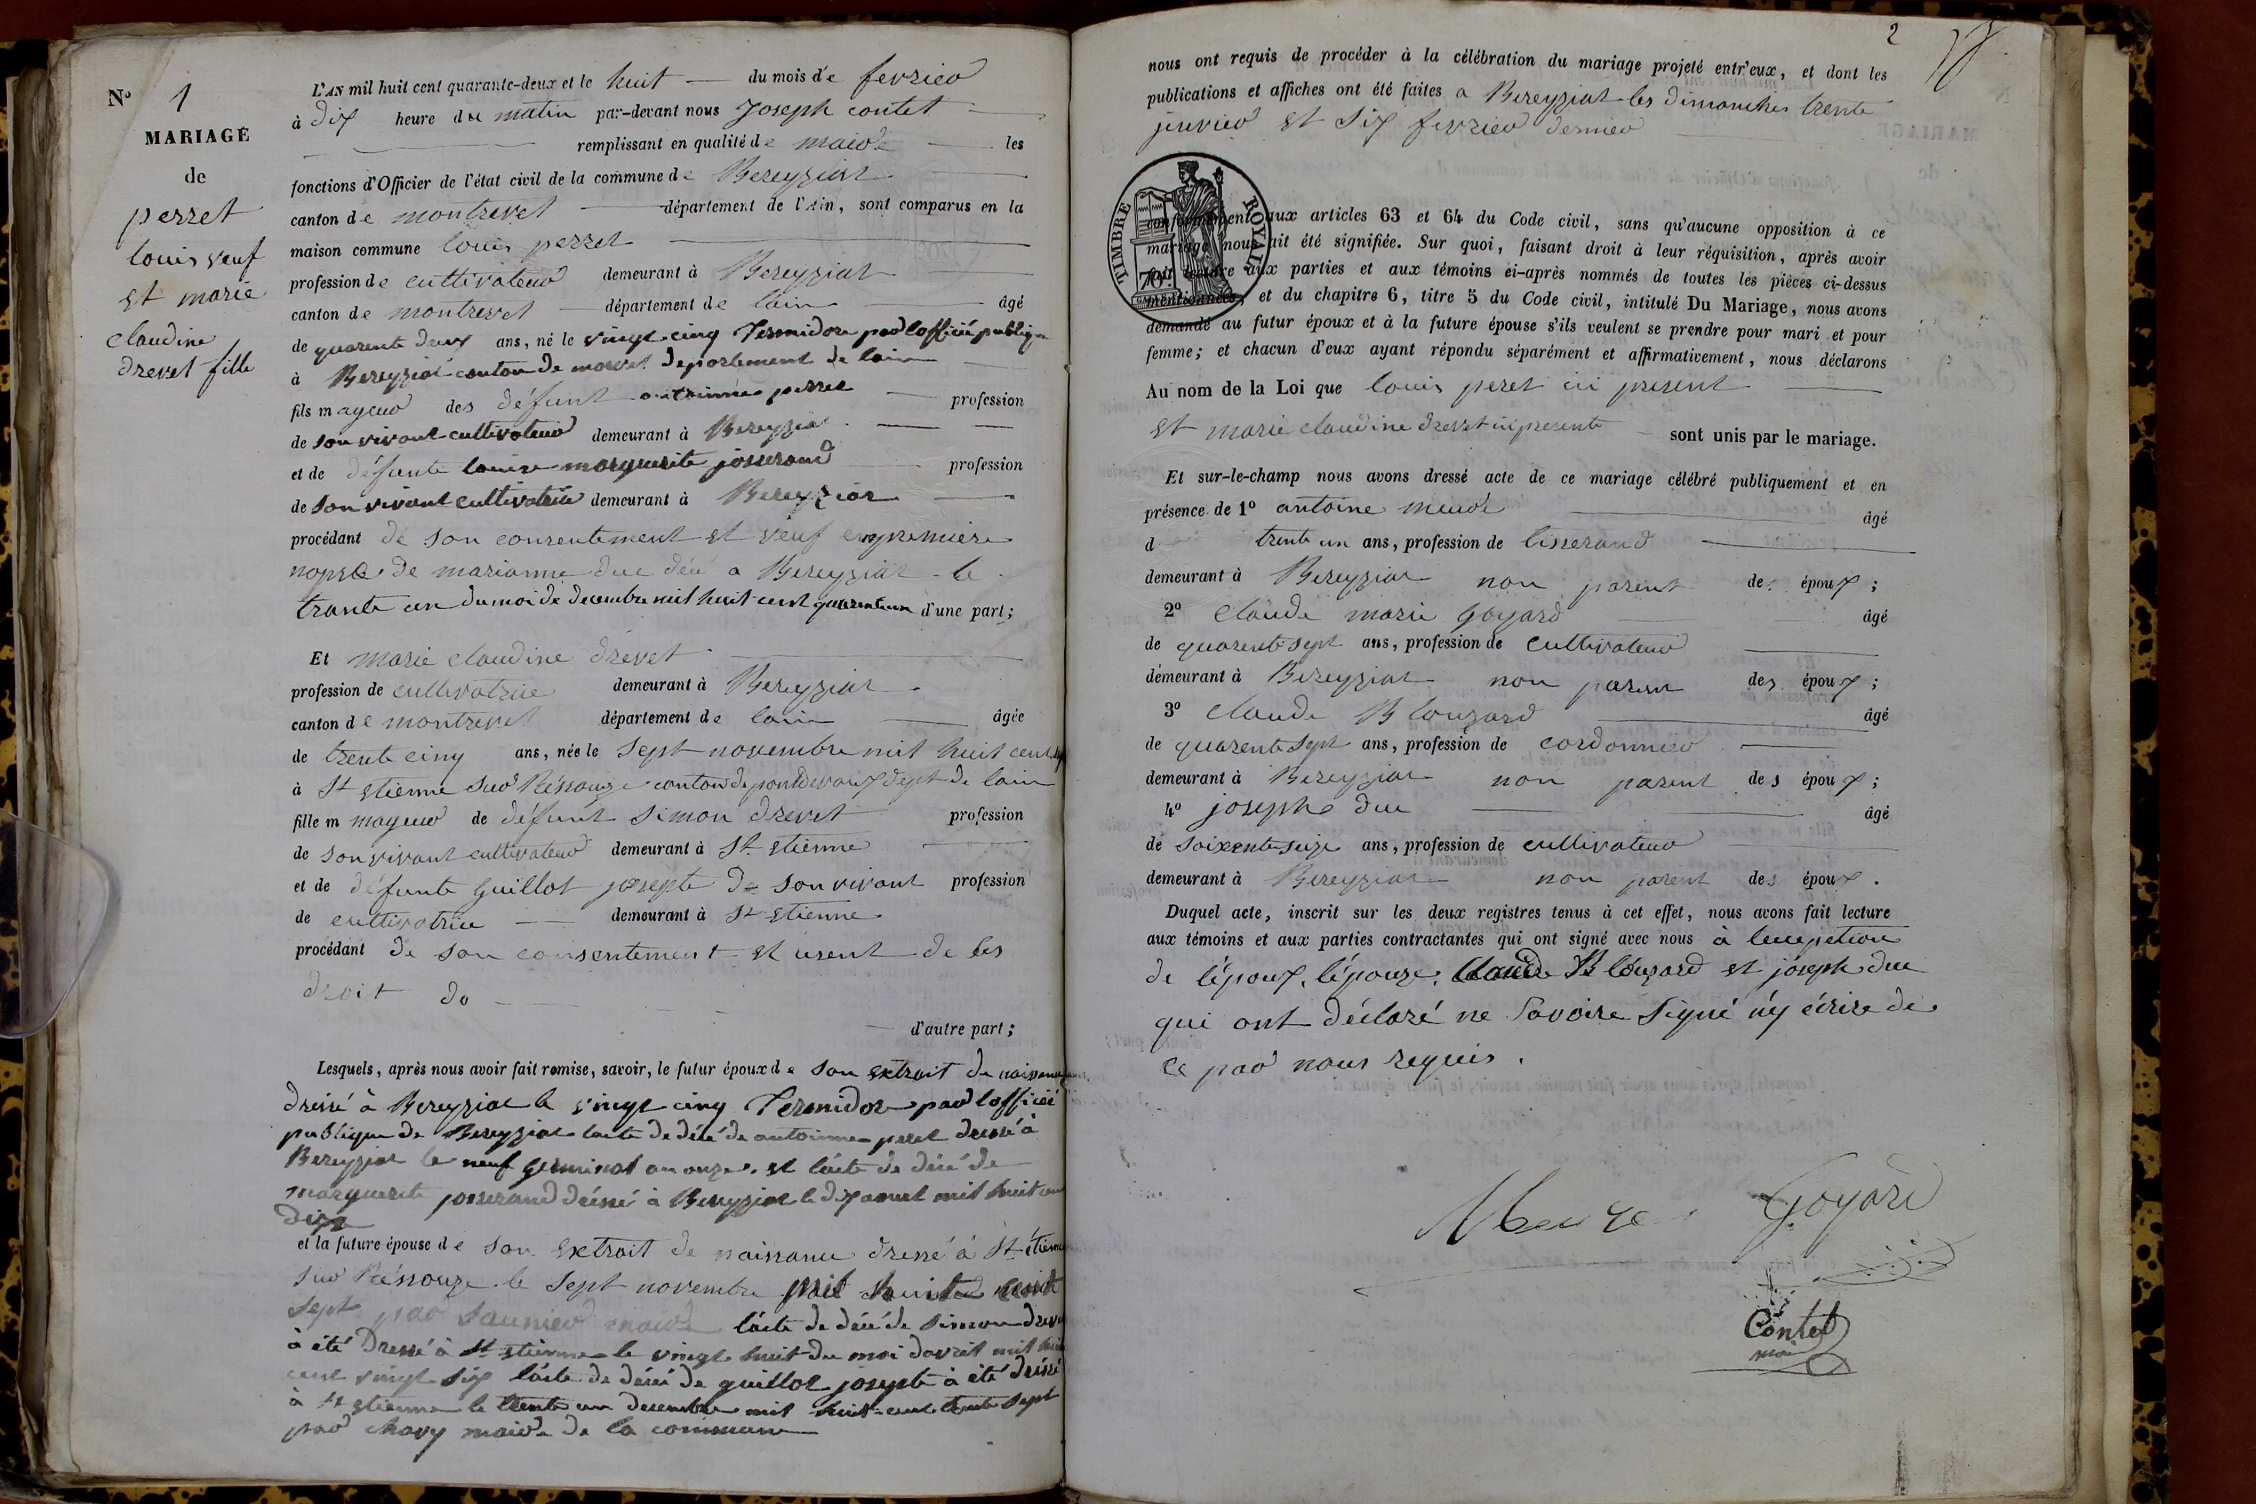 N° 1
MARIAGE
de
perret
louis veuf
et marie
claudine
drevet fille
L'AN mil huit cent quarante-deux et le huit du mois de fevrier
à dix heure du matin par-devant nous Joseph contet
remplissant en qualité de maire les
fonctions d'Officier de l'état civil de la commune de Bereyziat
canton de montrevet département de l'Ain, sont comparus en la
maison commune louis perret
profession de cultivateur demeurant à Bereyziat
canton de montrevet département de lain âgé
de quarente deux ans, né le vingt cinq Termidor par lofficié publique
à Bereyziat canton de département de lain
fils mageur des défunt antoinne perret profession
de son vivant cultivateur demeurant à Bereyziat
et de défunte louise marguerite josserand profession
de son vivant cultivatrice demeurant à Bereyziat
procédant de son consentement et veuf en premiere
nopse de marianne duc décé a Bereyziat le
trante un du moi de decembre mil huit cent quarente un d'une part;
Et marie claudine drevet
profession de cultivatrice demeurant à Bereyziat
canton de montrevet département de lain âgée
de trente cinq ans, née le sept novembre mil huit cent
à St etienne sur Réssouze canton de pontdevaux dept de lain
fille m mageur de défunt simon drevet profession
de son vivant cultivateur demeurant à St etienne
et de défunte Guillot josepte de son vivant profession
de cultivatrice demeurant à St etienne
procédant de son consentement et usent de ses
droit do
d'autre part;
Lesquels, après nous avoir fait remise, savoir, le futur époux de son extrait de naissance
dressé à Bereyziat le vingt cinq Termidor par lofficié
publique de Bereyziat lacte de décé de antoinne peret dressé à
Bereyziat le neuf germinal an onze. et lácte de décé de
marguerite josserand dréssé à Bereyziat le dix mil huit cent
et la future épouse de son extrait de naissance dressé à St étienne
sur Réssouze le sept novembre mil huit cent
sept par saunier maire lácte de décé de simon drevet
à été dressé à St etienne le vingt huit du moi davril mil huit
cent vingt six lácte de décé de guillot josepte à été dréssé
à St etienne le trente un decembre mil huit cent trente sept
par chavy maire de la commune
2
nous ont requis de procéder à la célébration du mariage projeté entr'eux, et dont les
publications et affiches ont été faites a Bereyziat les dimanches trente
jenvier et six fevrier dernier
TIMBRE ROYAL
70c
conformément aux articles 63 et 64 du Code civil, sans qu'aucune opposition à ce
mariage nous ait été signifiée. Sur quoi, faisant droit à leur réquisition, après avoir
fait lecture aux parties et aux témoins ci-après nommés de toutes les pièces ci-dessus
mentionnées, et du chapitre 6, titre 5 du Code civil, intitulé Du Mariage, nous avons
demandé au futur époux et à la future épouse s'ils veulent se prendre pour mari et pour
femme; et chacun d'eux ayant répondu séparément et affirmativement, nous déclarons
Au nom de la Loi que louis peret ici present
et marie claudine drevet ici presente sont unis par le mariage.
Et sur-le-champ nous avons dressé acte de ce mariage célébré publiquement et en
présence de 1° antoine âgé
d trente un ans, profession de tisserand
demeurant à Bereyziat non parent des époux;
2° Claude marie goyard âgé
de quarente sept ans, profession de cultivateur
demeurant à Bereyziat non parent des époux;
3° claude Blouzard âgé
de quarente sept ans, profession de cordonnier
demeurant à Bereyziat non parent des époux;
4° josephe duc âgé
de soixente seize ans, profession de cultivateur
demeurant à Bereyziat non parent des époux.
Duquel acte, inscrit sur les deux registres tenus à cet effet, nous avons fait lecture
aux témoins et aux parties contractantes qui ont signé avec nous à lecceptiion
de lépoux, lépouze, Claude Blouzard et joseph duc
qui ont déclaré ne savoire signé n'y écrire de
ce par nous requis.
Goyard
Contet
maire